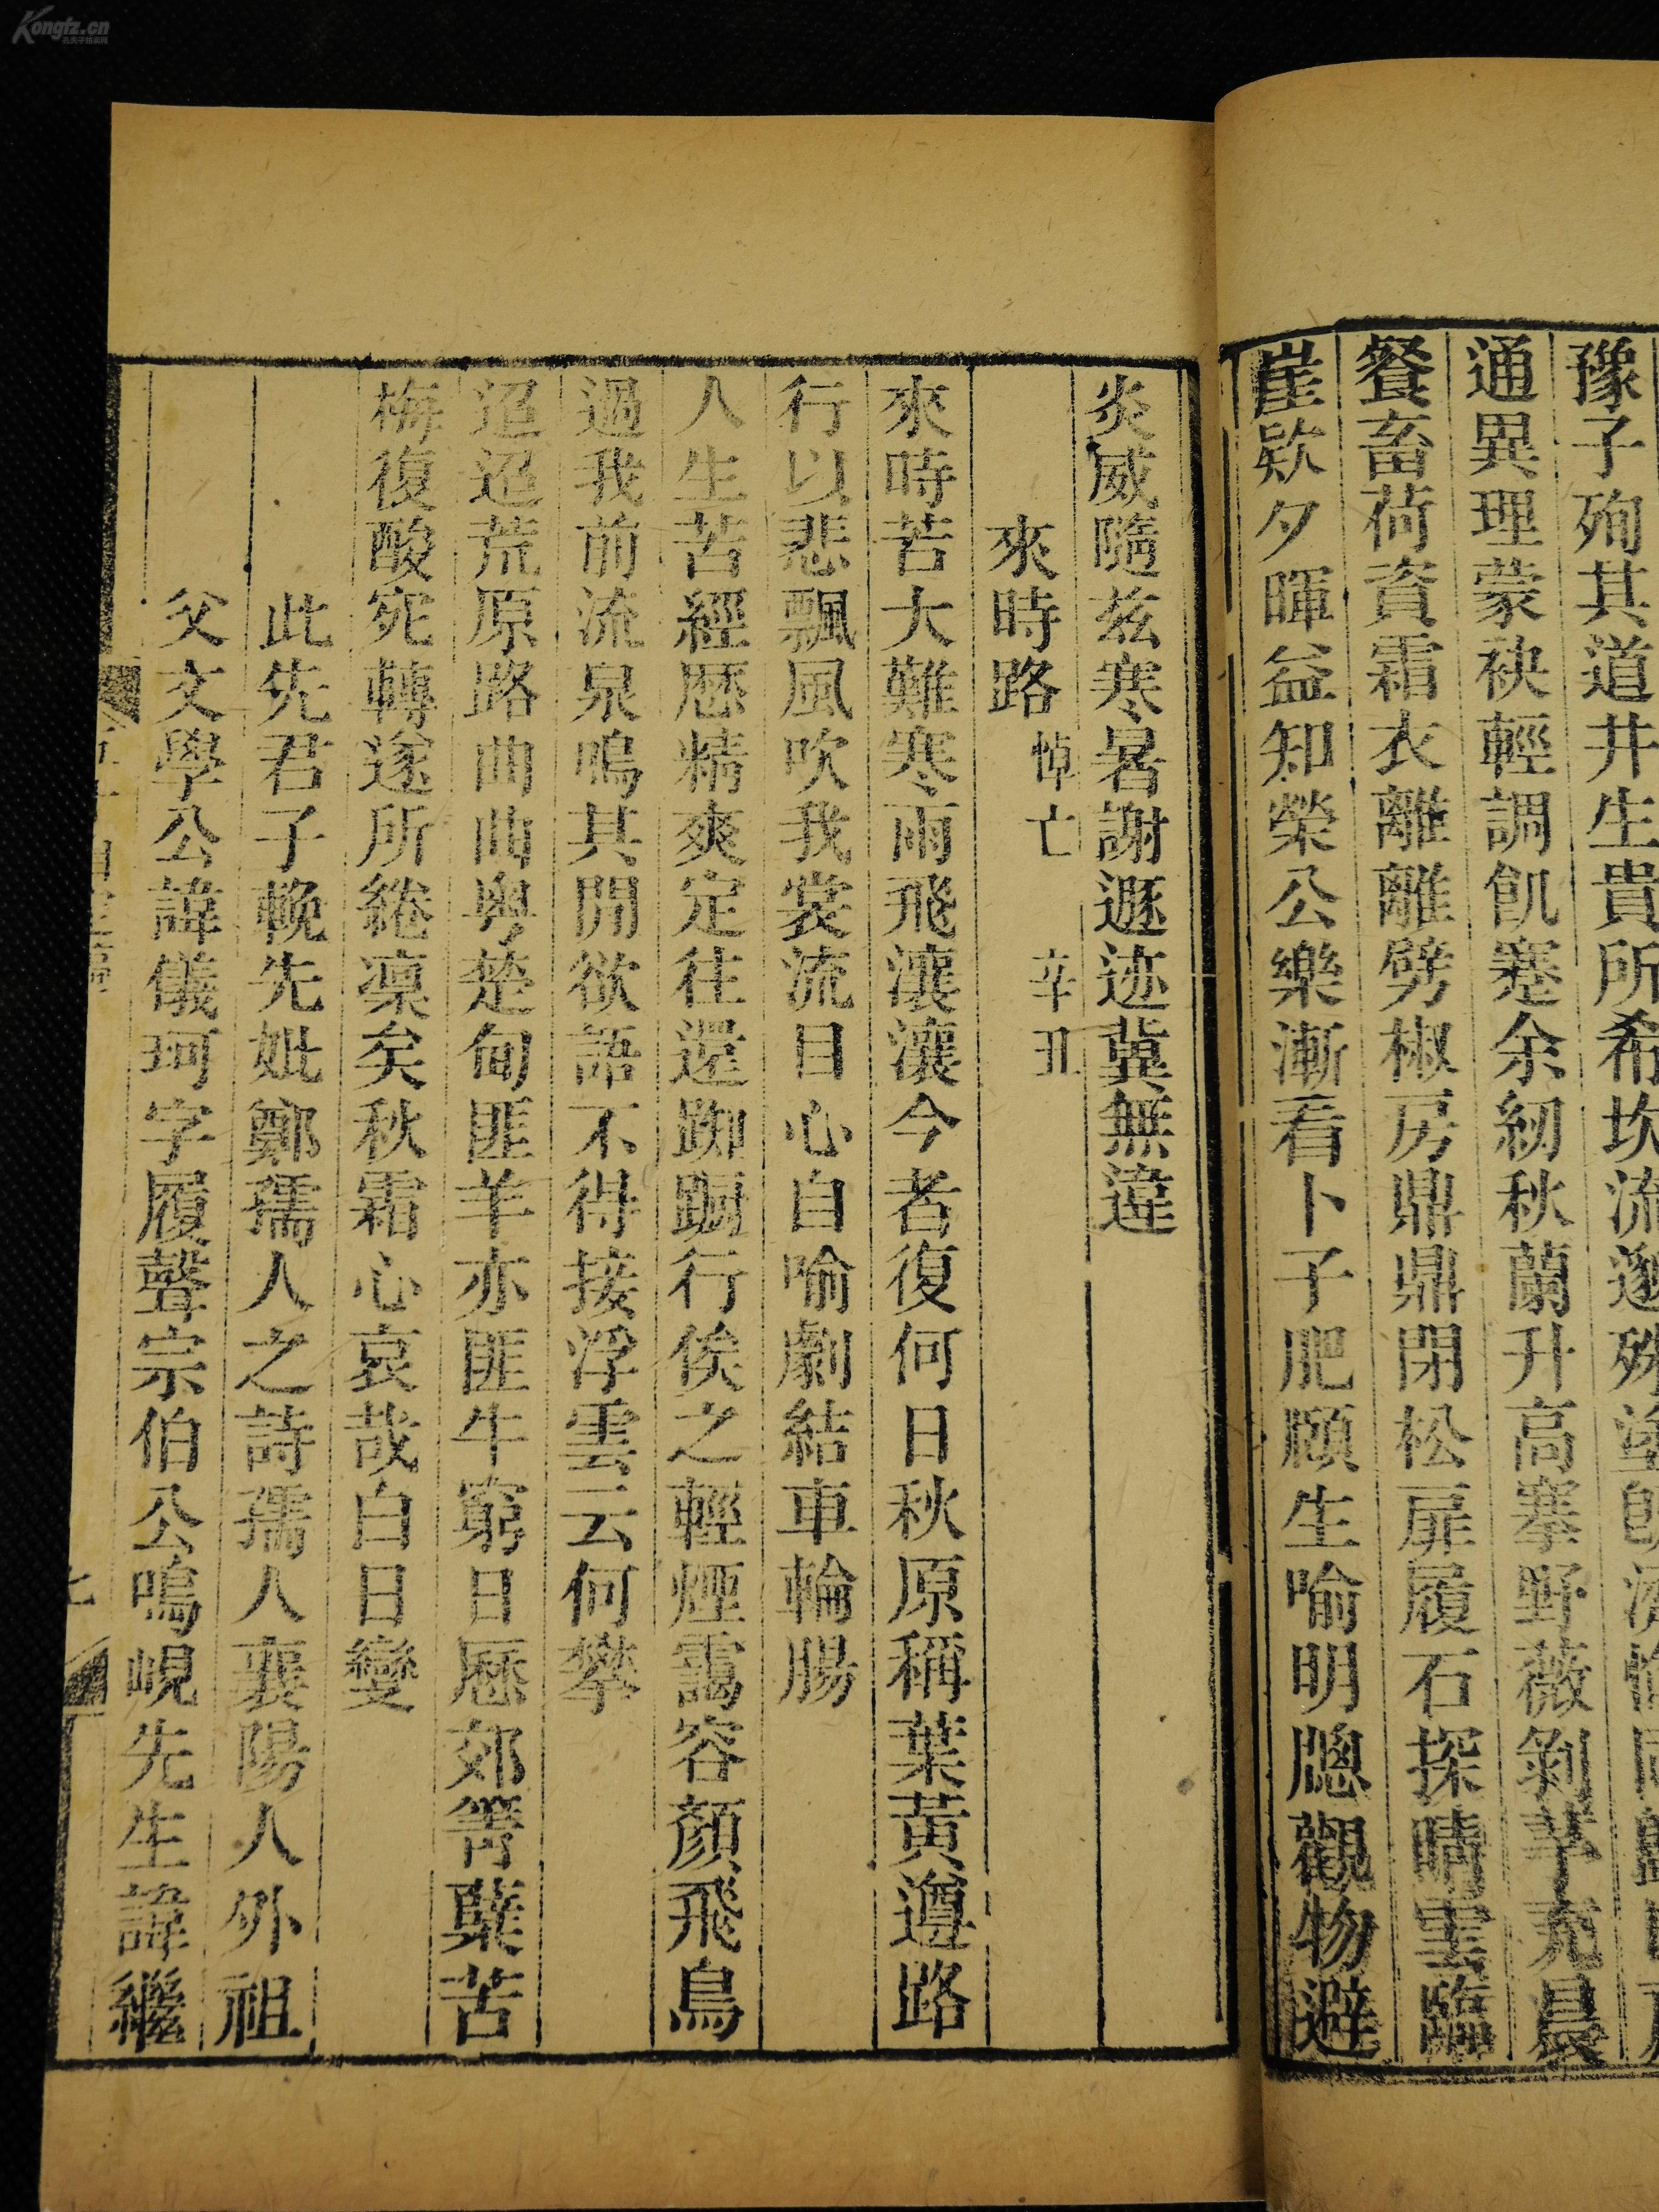 Kongfz.cn
豫子殉其道井生貴所希坎流邈殊塗
通異理蒙袂輕調飢蹇余紉秋蘭升高搴野薇剝芋充晨
餐畜荷資霜衣離離劈椒房鼎鼎閉松扉履石探晴雲臨
崖欵夕暉益知榮公樂漸看卜子肥頤生喻明牕觀物避
炎威隨茲寒暑謝遯迹冀無違
來時路 悼亡 辛丑
來時苦大難寒雨飛瀼瀼今者復何日秋原稱葉黃遵路
行以悲飄風吹我裳流目心自喻劇結車輪腸
人生苦經歷精爽定往還踟躕行俟之輕煙靄容顏飛鳥
過我前流泉鳴其閒欲語不得接浮雲云何攀
迢迢荒原路曲曲粵楚甸匪羊亦匪牛窮日歷郊箐蘖苦
梅復酸宛轉遂所綣凜矣秋霜心哀哉白日變
此先君子輓先妣鄭孺人之詩孺人襄陽人外祖
父文學公諱儀珂字履聲宗伯公鳴峴先生諱繼
七